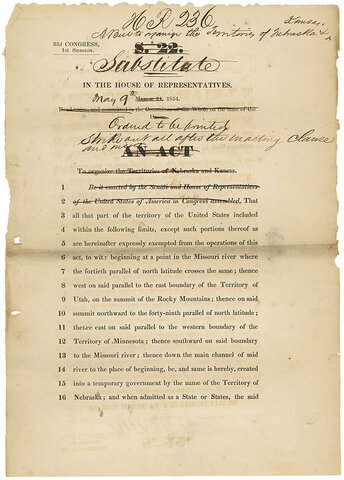 H R 236.
A Bill to organize the Territories of Nebraska &
33d CONGRESS,
1st Session.
S. 22.
Substitute
IN THE HOUSE OF REPRESENTATIVES.
May 9th March 21, 1854.
Read twice, and committed to the Committee of the Whole on the state of the
Union.
Ordered to be printed
Strike out all after the enacting clause
and
AN ACT
To organize the Territories of Nebraska and Kansas.
1 Be it enacted by the Senate and House of Representatives
2 of the United States of America in Congress assembled, That
3 all that part of the territory of the United States included
4 within the following limits, except such portions thereof as
5 are hereinafter expressly exempted from the operations of this
6 act, to wit: beginning at a point in the Missouri river where
7 the fortieth parallel of north latitude crosses the same; thence
8 west on said parallel to the east boundary of the Territory of
9 Utah, on the summit of the Rocky Mountains; thence on said
10 summit northward to the forty-ninth parallel of north latitude;
11 thence east on said parallel to the western boundary of the
12 Territory of Minnesota; thence southward on said boundary
13 to the Missouri river; thence down the main channel of said
14 river to the place of beginning, be, and same is hereby, created
15 into a temporary government by the name of the Territory of
16 Nebraska; and when admitted as a State or States, the said